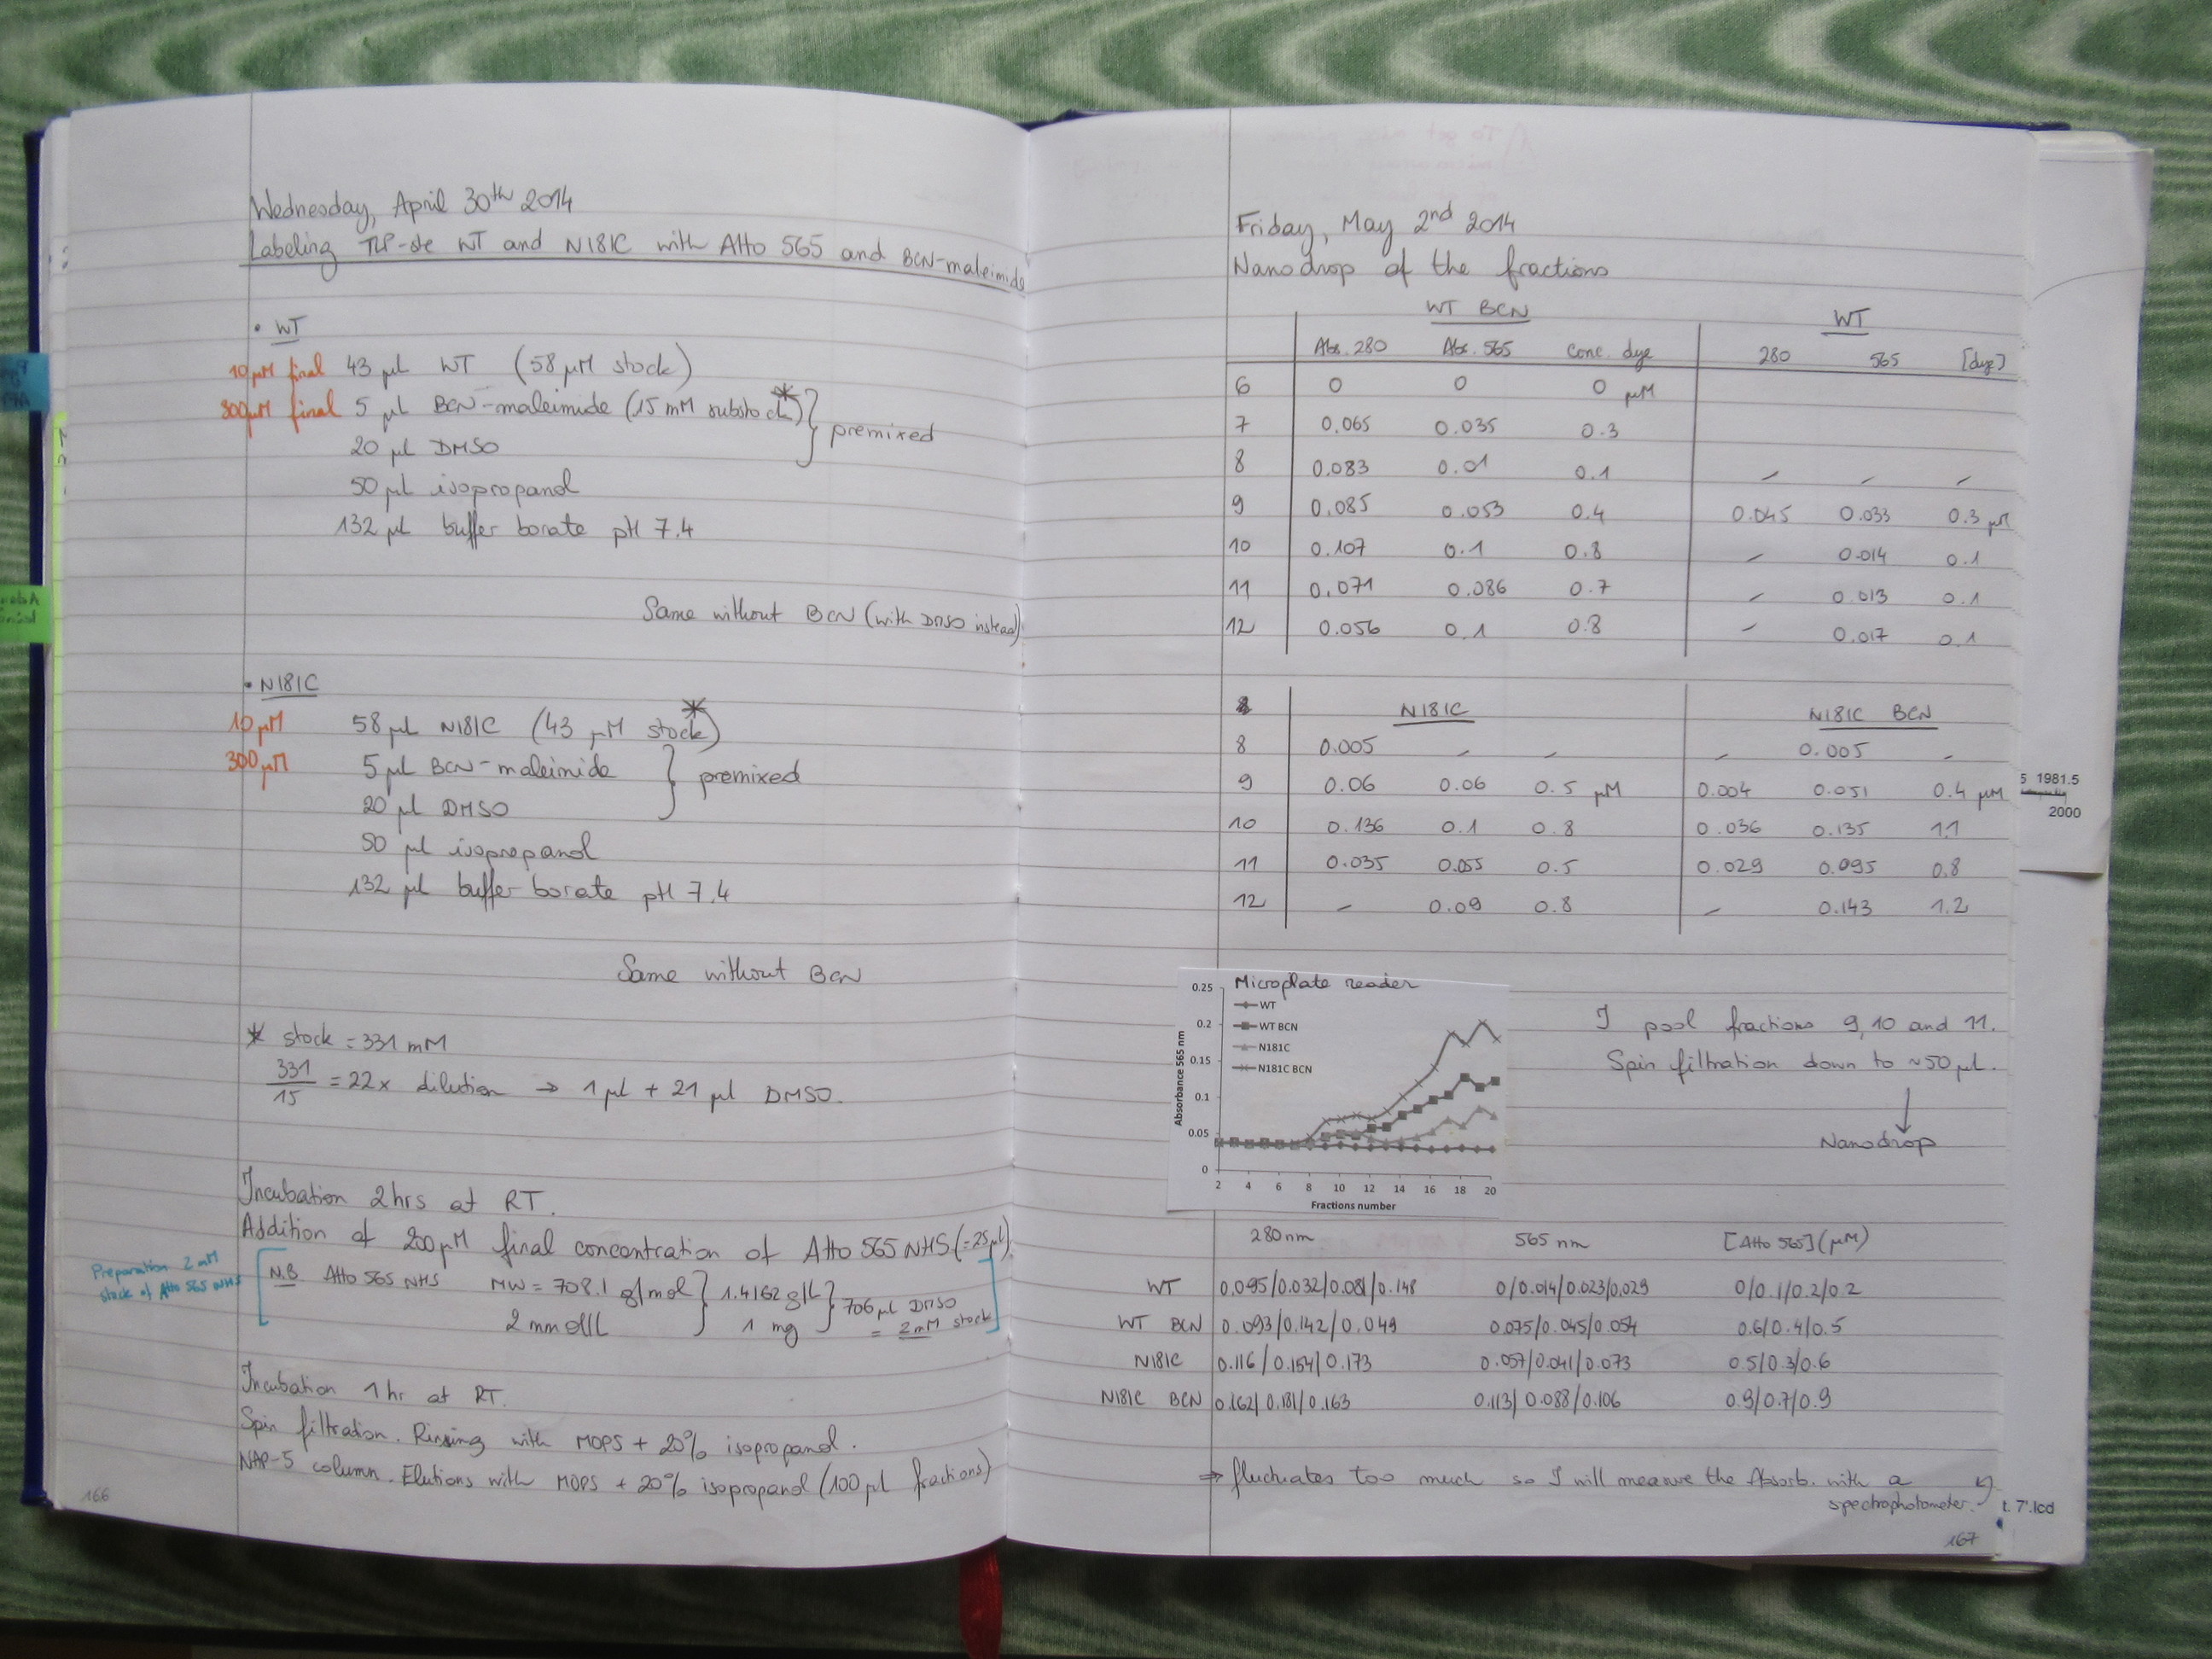 Wednesday, April 30th 2014
Labeling TLP-ste WT and N181C with Atto 565 and BCN-maleimide
• WT
10 µM final 43 µL WT (58 µM stock)
300µM final 5 µL BCN-maleimide (15 mM substock*) } premixed
20 µL DMSO
50 µL isopropanol
132 µL buffer borate pH 7.4
Same without BCN (with DMSO instead)
• N181C
10 µM 58 µL N181C (43 µM stock)*
300 µM 5 µL BCN-maleimide } premixed
20 µL DMSO
50 µL isopropanol
132 µL buffer borate pH 7.4
Same without BCN
* stock = 331 mM
331/15 = 22x dilution → 1 µL + 21 µL DMSO.
Incubation 2 hrs at RT.
Addition of 200 µM final concentration of Atto 565 NHS (=25 µL).
Preparation 2 mM
stock of Atto 565 NHS
N.B Atto 565 NHS MW = 708.1 g/mol } 1.4162 g/L } 706 µL DMSO
2 mmol/L 1 mg = 2 mM stock
Incubation 1 hr at RT.
Spin filtration. Rinsing with MOPS + 20% isopropanol.
NAP-5 column. Elutions with MOPS + 20% isopropanol (100 µL fractions)
166
Friday, May 2nd 2014
Nanodrop of the fractions
WT BCN WT
Abs. 280 Abs. 565 Conc. dye 280 565 [dye]
6 0 0 0 µM
7 0.065 0.035 0.3
8 0.083 0.01 0.1 - - -
9 0.085 0.053 0.4 0.045 0.033 0.3 µM
10 0.107 0.1 0.8 - 0.014 0.1
11 0.071 0.086 0.7 - 0.013 0.1
12 0.056 0.1 0.8 - 0.017 0.1
N181C N181C BCN
8 0.005 - - - 0.005 -
9 0.06 0.06 0.5 µM 0.004 0.051 0.4 µM
10 0.136 0.1 0.8 0.036 0.135 1.1
11 0.035 0.055 0.5 0.029 0.095 0.8
12 - 0.09 0.8 - 0.143 1.2
5 1981.5
2000
Microplate reader
WT
WT BCN
N181C
N181C BCN
Absorbance 565 nm
0.25
0.2
0.15
0.1
0.05
0
2 4 6 8 10 12 14 16 18 20
Fractions number
I pool fractions 9, 10 and 11.
Spin filtration down to ~50 µL.
↓
Nanodrop
280 nm 565 nm [Atto 565] (µM)
WT 0.095/0.032/0.081/0.148 0/0.014/0.023/0.029 0/0.1/0.2/0.2
WT BCN 0.093/0.142/0.049 0.075/0.045/0.054 0.6/0.4/0.5
N181C 0.116/0.154/0.173 0.057/0.041/0.073 0.5/0.3/0.6
N181C BCN 0.162/0.181/0.163 0.113/0.088/0.106 0.9/0.7/0.9
⇒ fluctuates too much so I will measure the Absorb. with a
spectrophotometer.
t. 7'.lcd
167